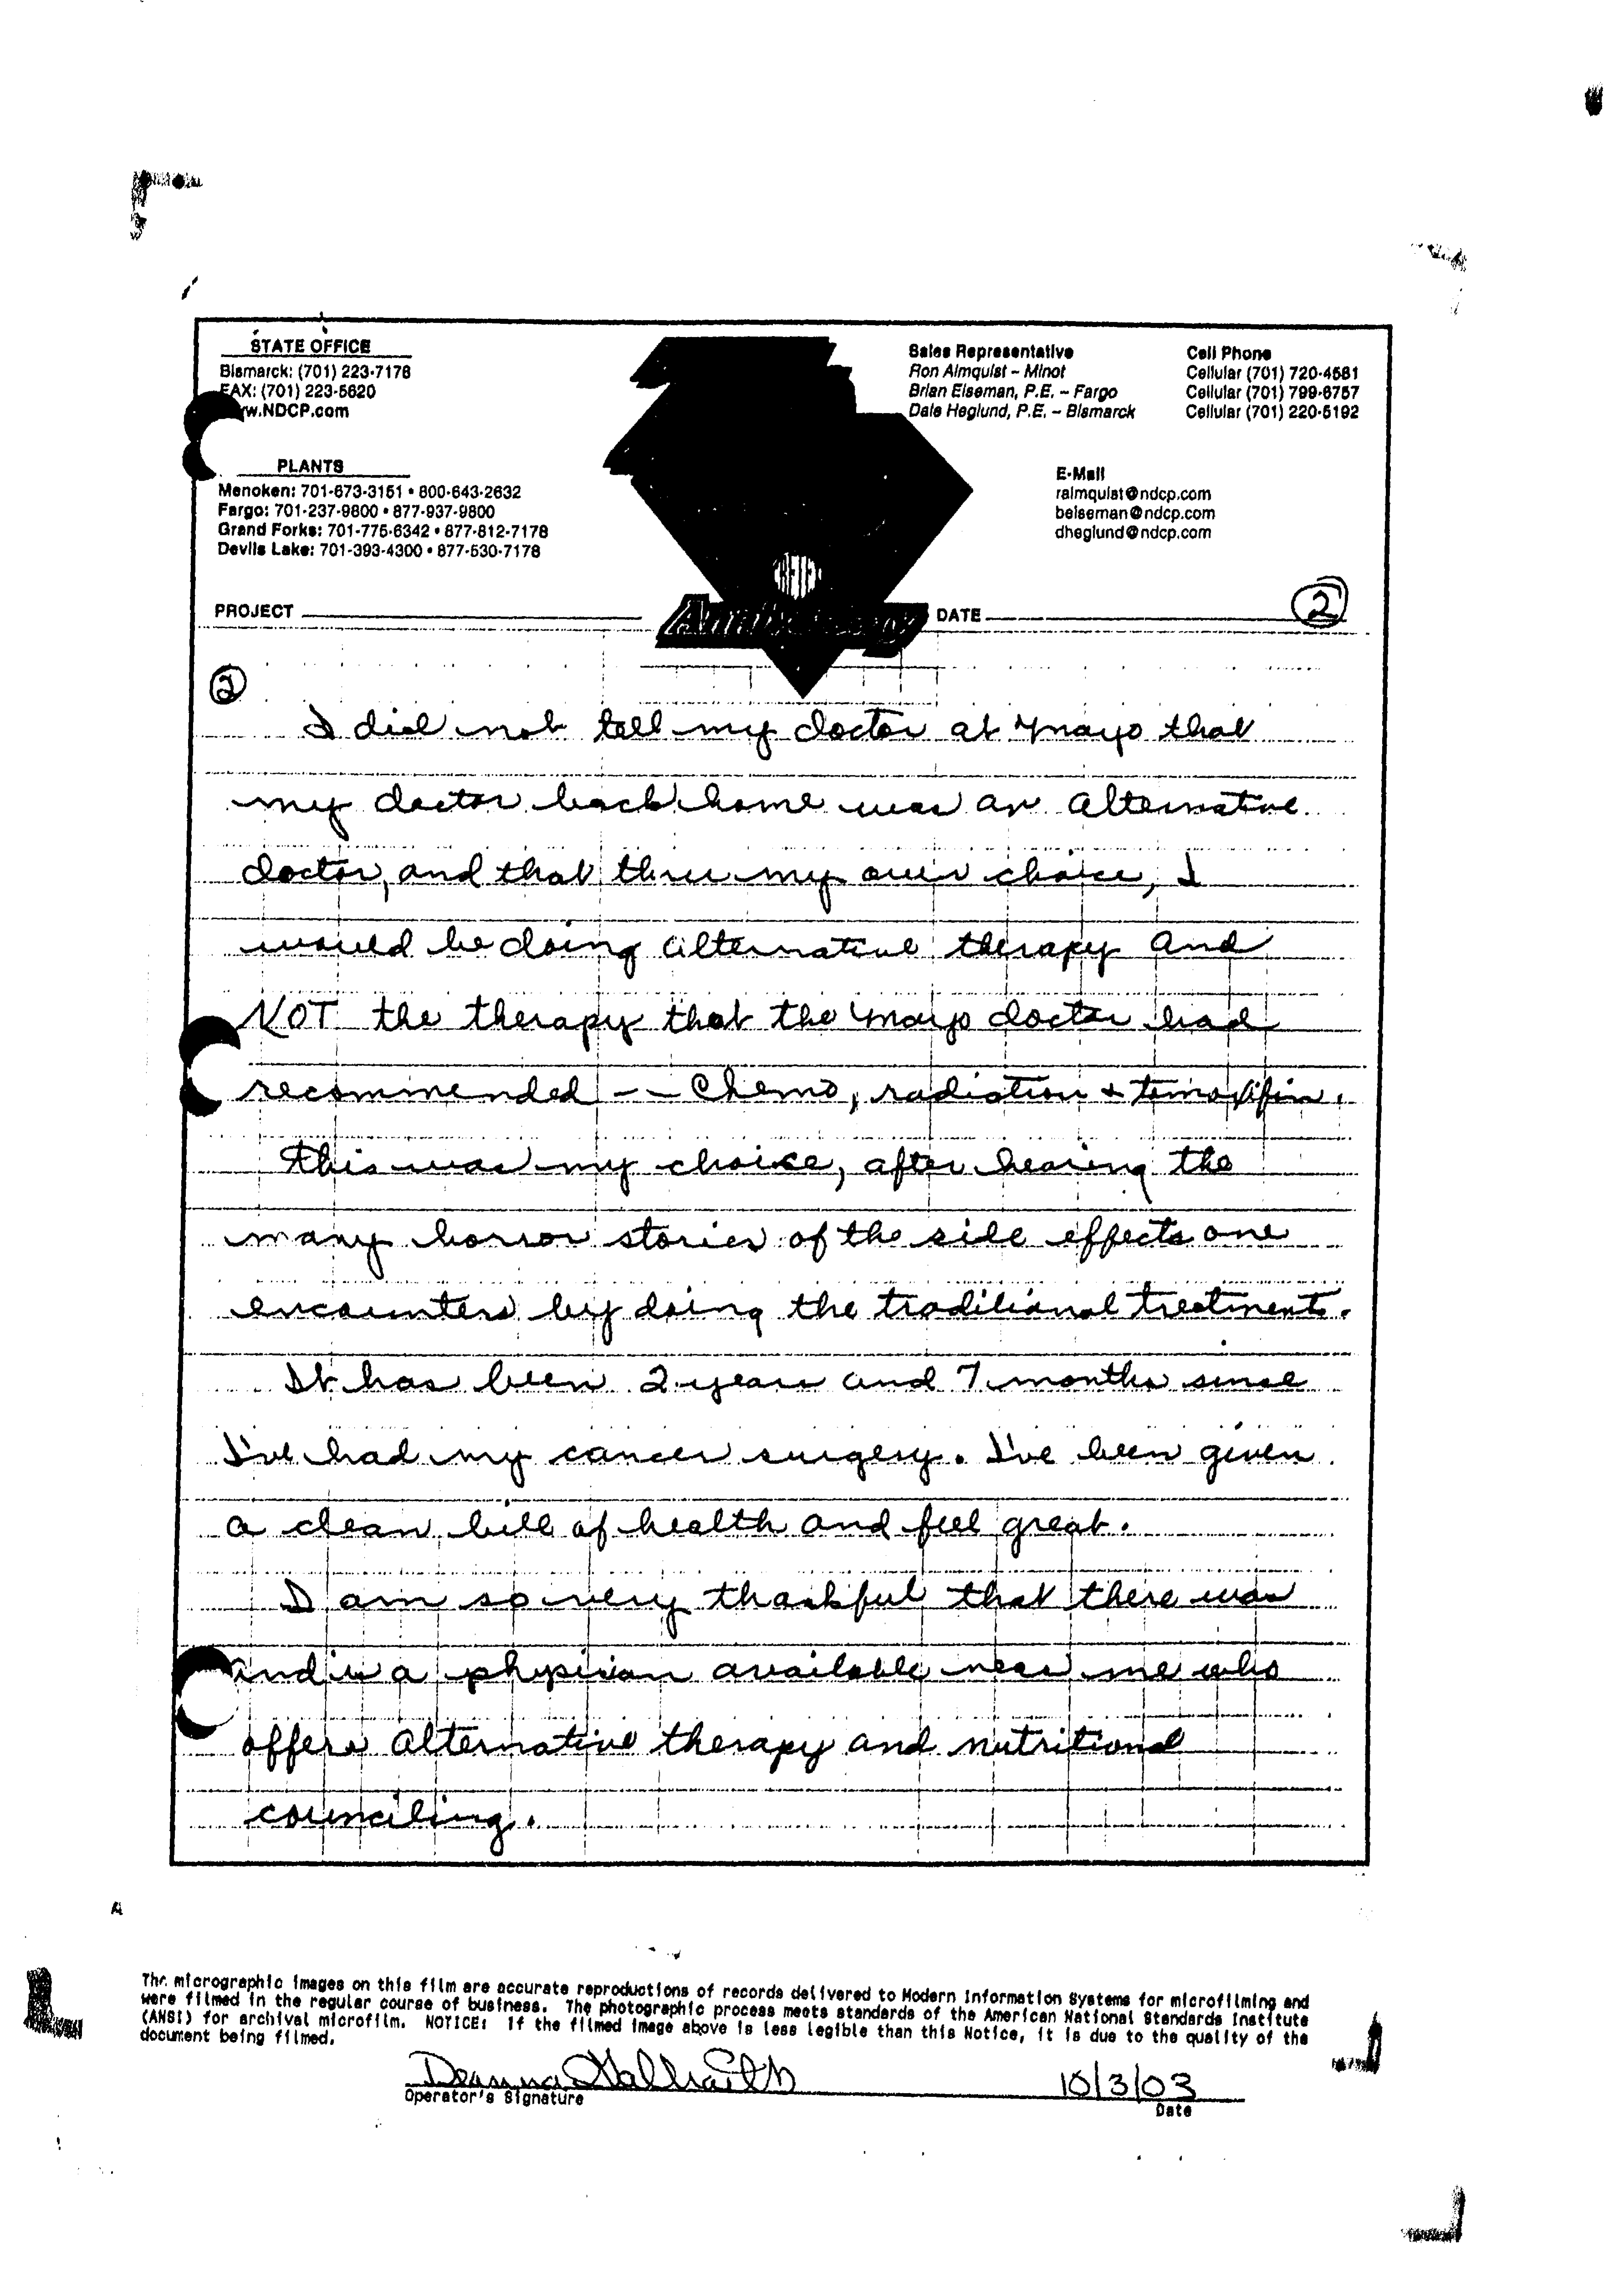 STATE OFFICE
Bismarck: (701) 223-7178
FAX: (701) 223-5620
w.NDCP.com
PLANTS
Menoken: 701-673-3151 • 800-643-2632
Fargo: 701-237-9800 • 877-937-9800
Grand Forks: 701-775-6342 • 877-812-7178
Devils Lake: 701-393-4300 • 877-530-7178
Sales Representative
Ron Almquist – Minot
Brian Eiseman, P.E. – Fargo
Dale Heglund, P.E. – Bismarck
Cell Phone
Cellular (701) 720-4581
Cellular (701) 799-6757
Cellular (701) 220-5192
E-Mail
ralmquist@ndcp.com
beiseman@ndcp.com
dheglund@ndcp.com
Anniversary
PROJECT
DATE
2
2
I did not tell my doctor at Mayo that
my doctor back home was an alternative
doctor, and that thru my own choice, I
would be doing alternative therapy and
NOT the therapy that the Mayo doctor had
recommended -- Chemo, radiation & tomoxifin.
This was my choice, after hearing the
many horror stories of the side effects one
encounters by doing the traditional treatments.
It has been 2 years and 7 months since
I've had my cancer surgery. I've been given
a clean bill of health and feel great.
I am so very thankful that there was
and is a physician available near me who
offers alternative therapy and nutritional
counciling.
The micrographic images on this film are accurate reproductions of records delivered to Modern Information Systems for microfilming and
were filmed in the regular course of business. The photographic process meets standards of the American National Standards Institute
(ANSI) for archival microfilm. NOTICE: If the filmed image above is less legible than this Notice, it is due to the quality of the
document being filmed.
Deanna
10/3/03
Operator's Signature
Date